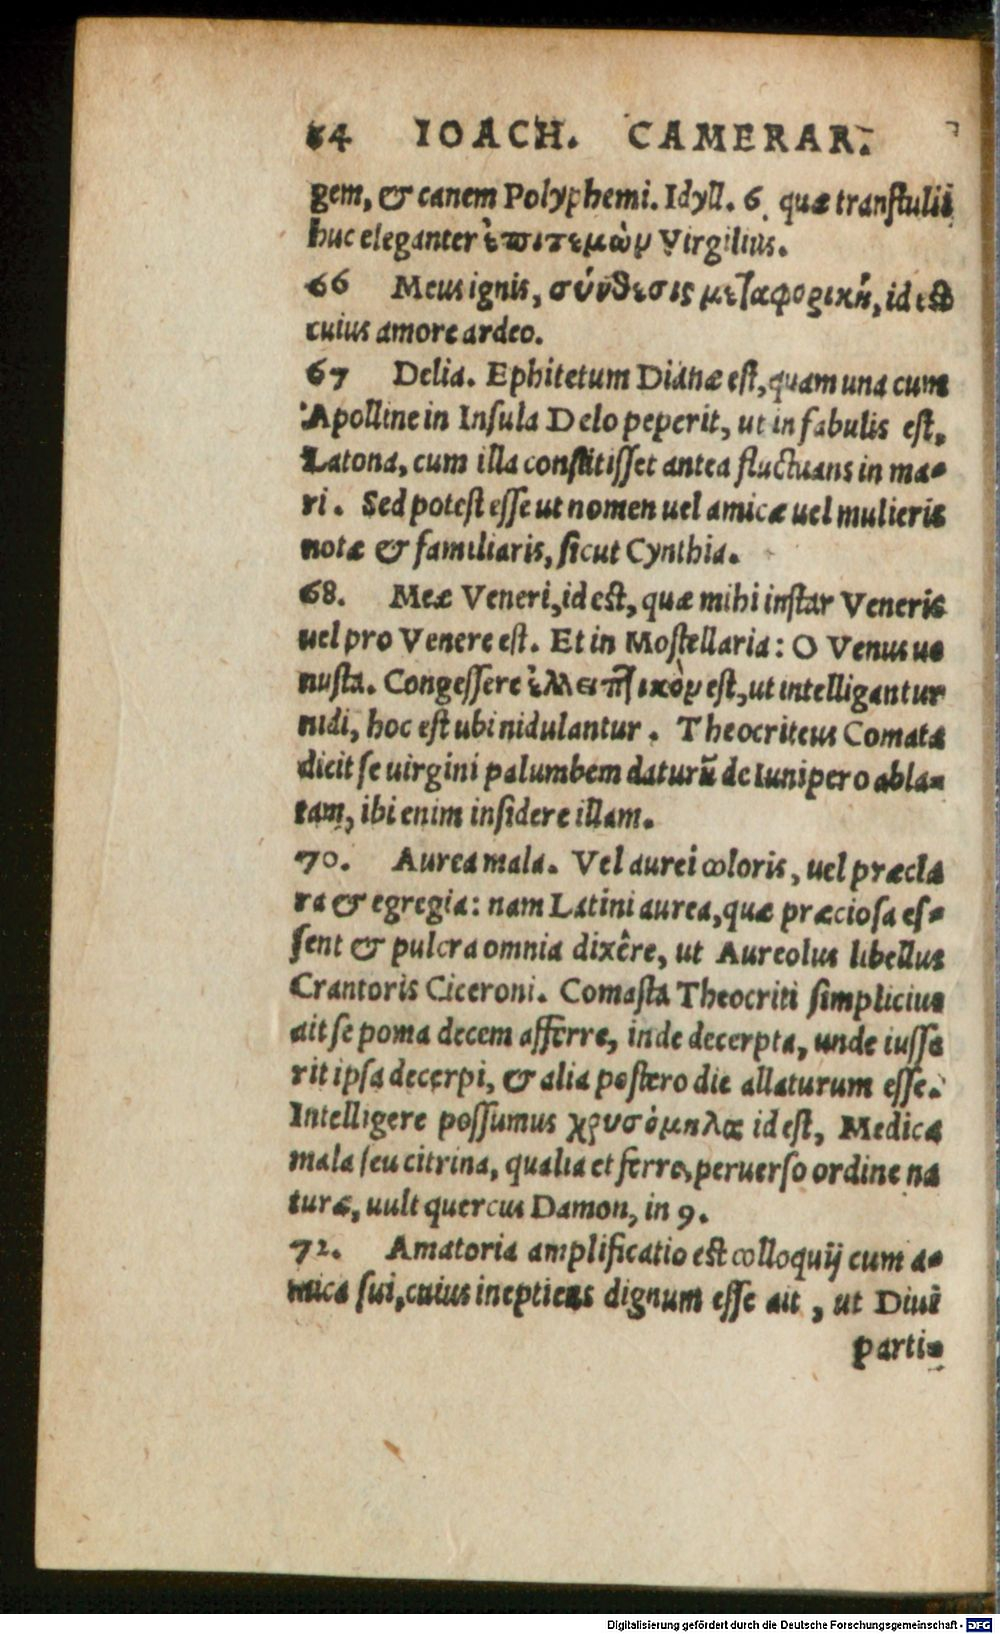 84 IOACH. CAMERAR.
gem, & canem Polyphemi. Idyll. 6. quæ tranſtulit
huc eleganter ἐπιτεμὼν Virgilius.
66 Meus ignis, σύνθεσις μεταφορικὴ, id est
cuius amore ardeo.
67 Delia. Ephitetum Dianæ eſt, quam una cum
Apolline in Inſula Delo peperit, ut in fabulis eſt,
Latona, cum illa conſtitiſſet antea fluctuans in ma-
ri. Sed poteſt eſſe ut nomen uel amicæ uel mulieris
notæ & familiaris, ſicut Cynthia.
68. Meæ Veneri, id est, quæ mihi inſtar Veneris
uel pro Venere eſt. Et in Moſtellaria: O Venus ue
nuſta. Congeſſere ἐλλειπτικὸν eſt, ut intelligantur
nidi, hoc eſt ubi nidulantur. Theocriteus Comata
dicit ſe uirgini palumbem daturũ de Iunipero abla-
tam, ibi enim inſidere illam.
70. Aurea mala. Vel aurei coloris, uel præcla
ra & egregia: nam Latini aurea, quæ præcioſa eſ-
ſent & pulcra omnia dixêre, ut Aureolus libellus
Crantoris Ciceroni. Comaſta Theocriti ſimplicius
ait ſe poma decem afferre, inde decerpta, unde iuſſe
rit ipſa decerpi, & alia poſtero die allaturum eſſe.
Intelligere poſſumus χρυσόμηλα id eſt, Medica
mala ſeu citrina, qualia et ferre, peruerſo ordine na
turæ, uult quercus Damon, in 9.
72. Amatoria amplificatio est colloquij cum a-
mica ſui, cuius ineptiens dignum eſſe ait, ut Diuũ
parti-
Digitalisierung gefördert durch die Deutsche Forschungsgemeinschaft - DFG